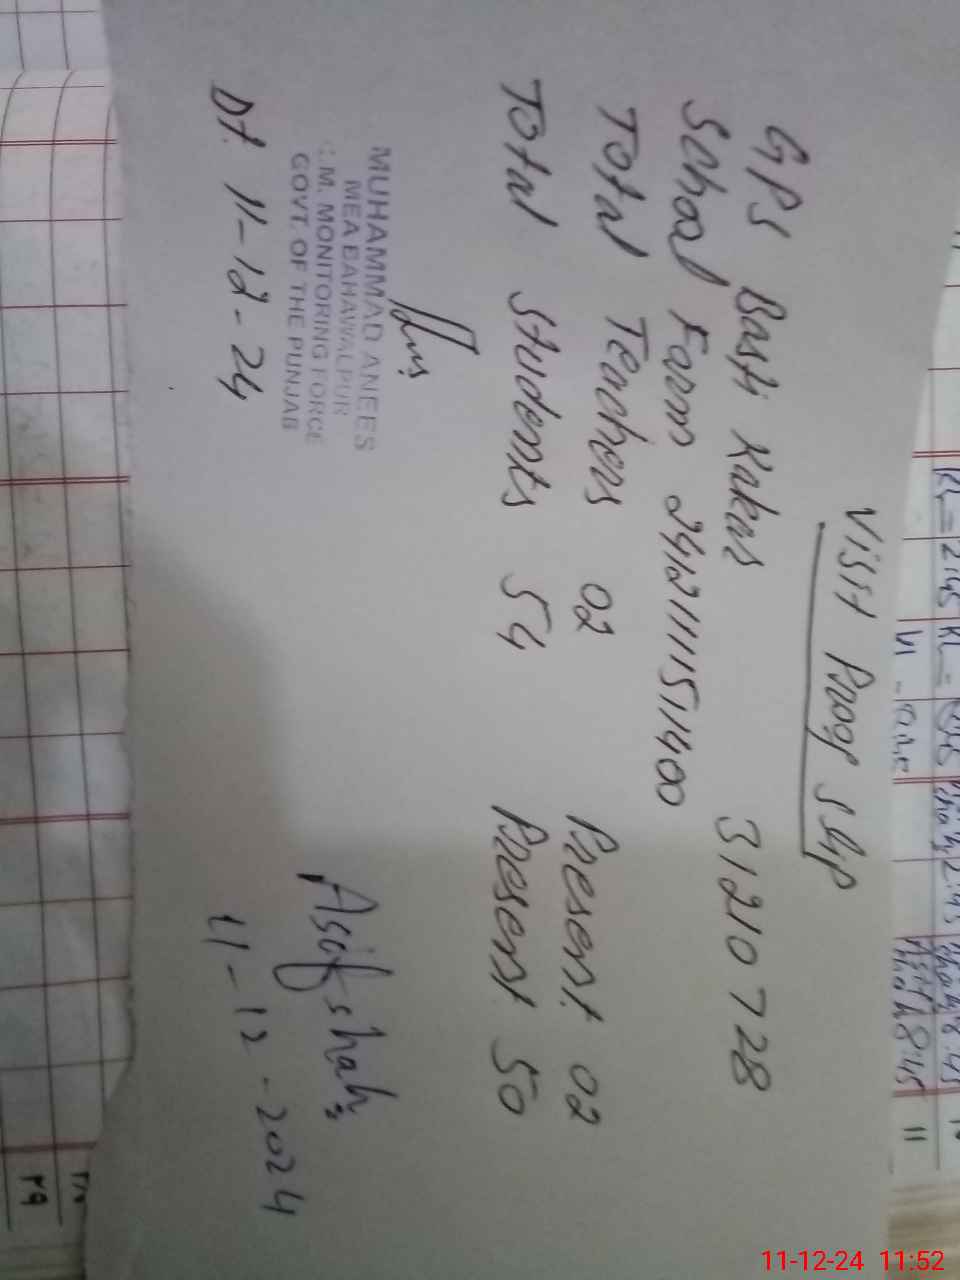 Visit Proof Slip
GPS Basti Kakus 31210728
School Form 24121111511400
Total Teachers 02 Present 02
Total Students 54 Present 50
MUHAMMAD ANEES
MEA BAHAWALPUR
C.M. MONITORING FORCE
GOVT. OF THE PUNJAB
Asif shah
Dt. 11-12-24
11-12-2024
11-12-24 11:52